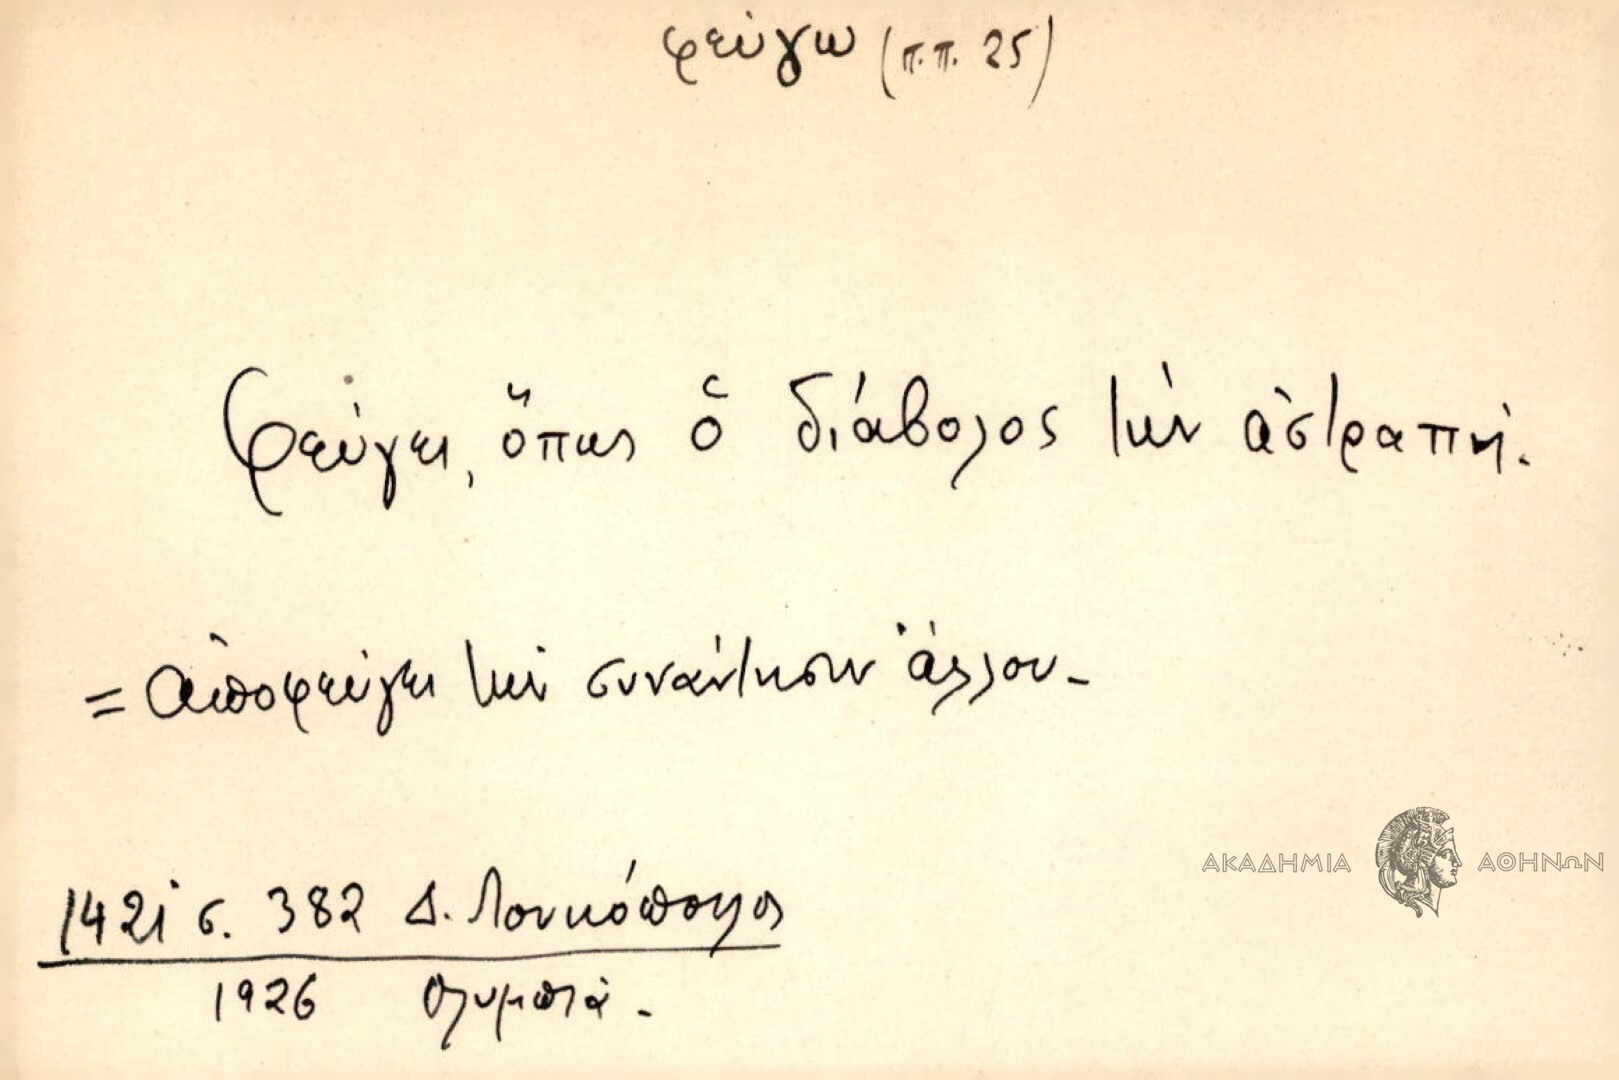 φεύγω (π.π. 25)
Φεύγει, ὅπως ὁ διάβολος τὴν ἀστραπή.
= ἀποφεύγει τὴν συνάντησιν ἄλλου -
1421 σ. 382 Δ. Λουκόπουλος
1926 Ολυμπιά -
ΑΚΑΔΗΜΙΑ ΑΘΗΝΩΝ